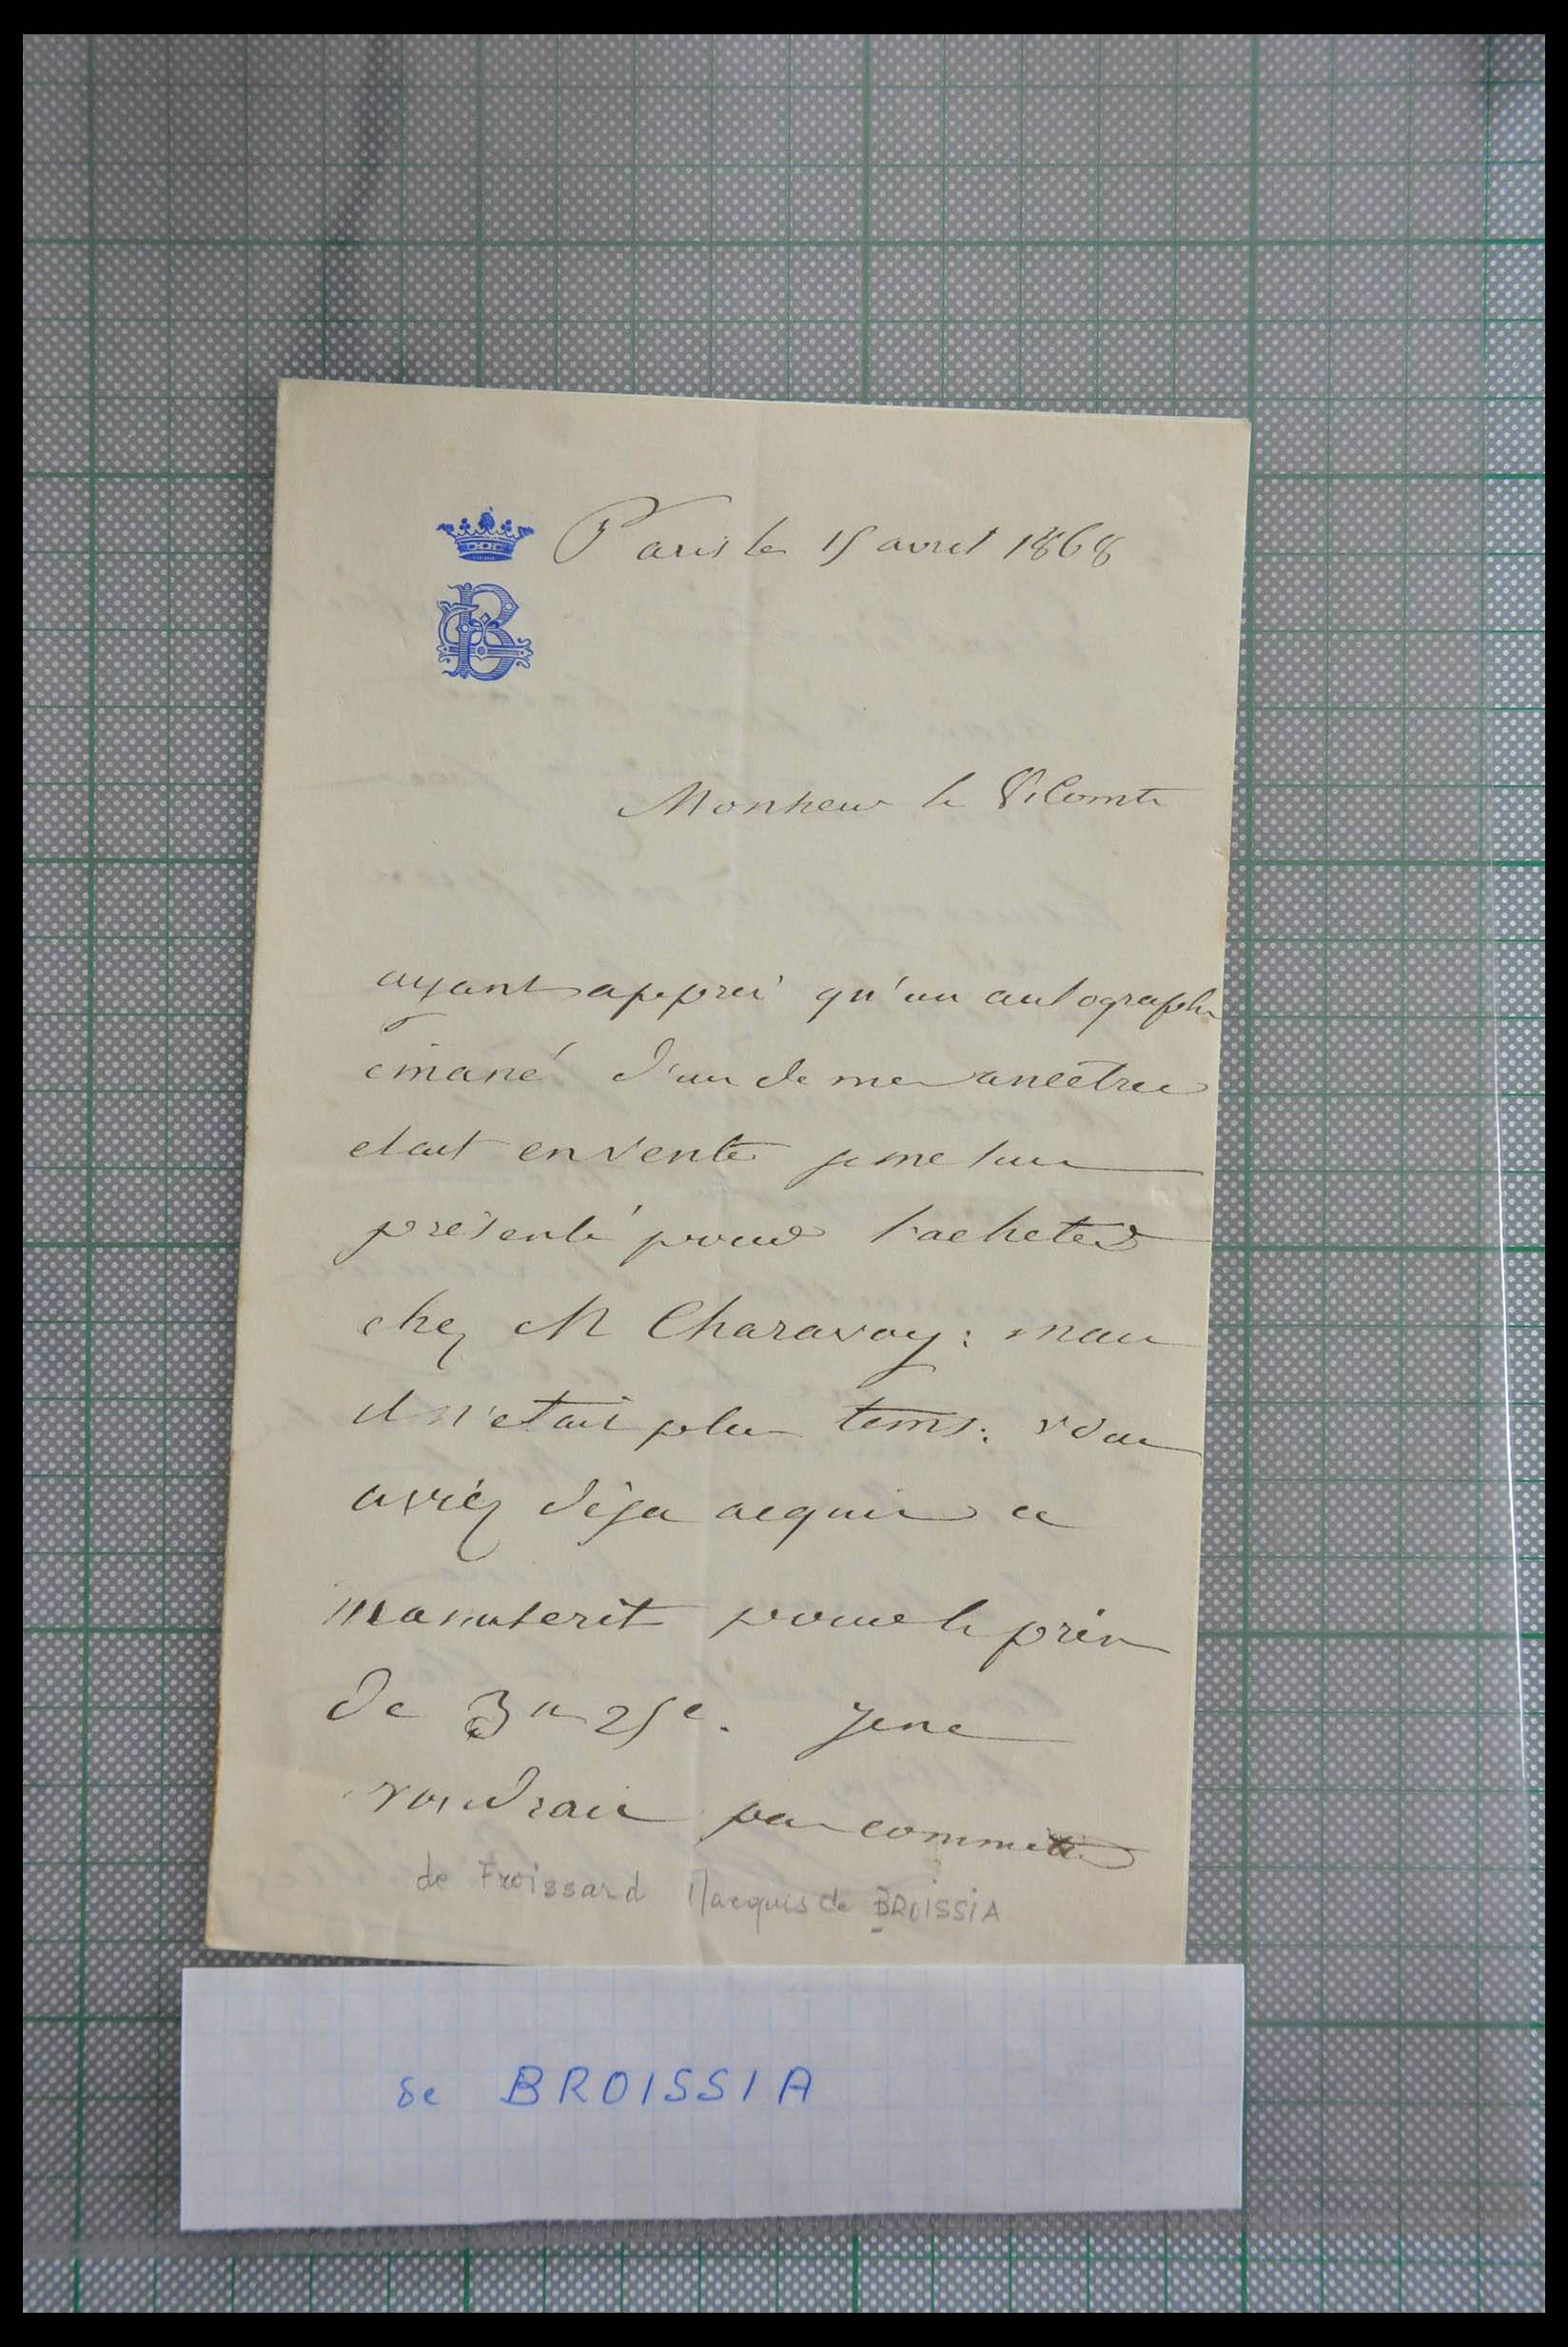 Paris le 15 avril 1868
B
Monsieur le Vicomte
ayant appris qu'un autographe
émané d'un de mes ancetres
etait en vente je me suis
présenté pour l'acheter
chez M Charavay: mais
il n'etait plus tems: vous
aviéz déja acquis ce
manuscrit pour le prix
de 3 25c. Je ne
voudrais pas commettre
de Froissard Marquis de BROISSIA
de BROISSIA